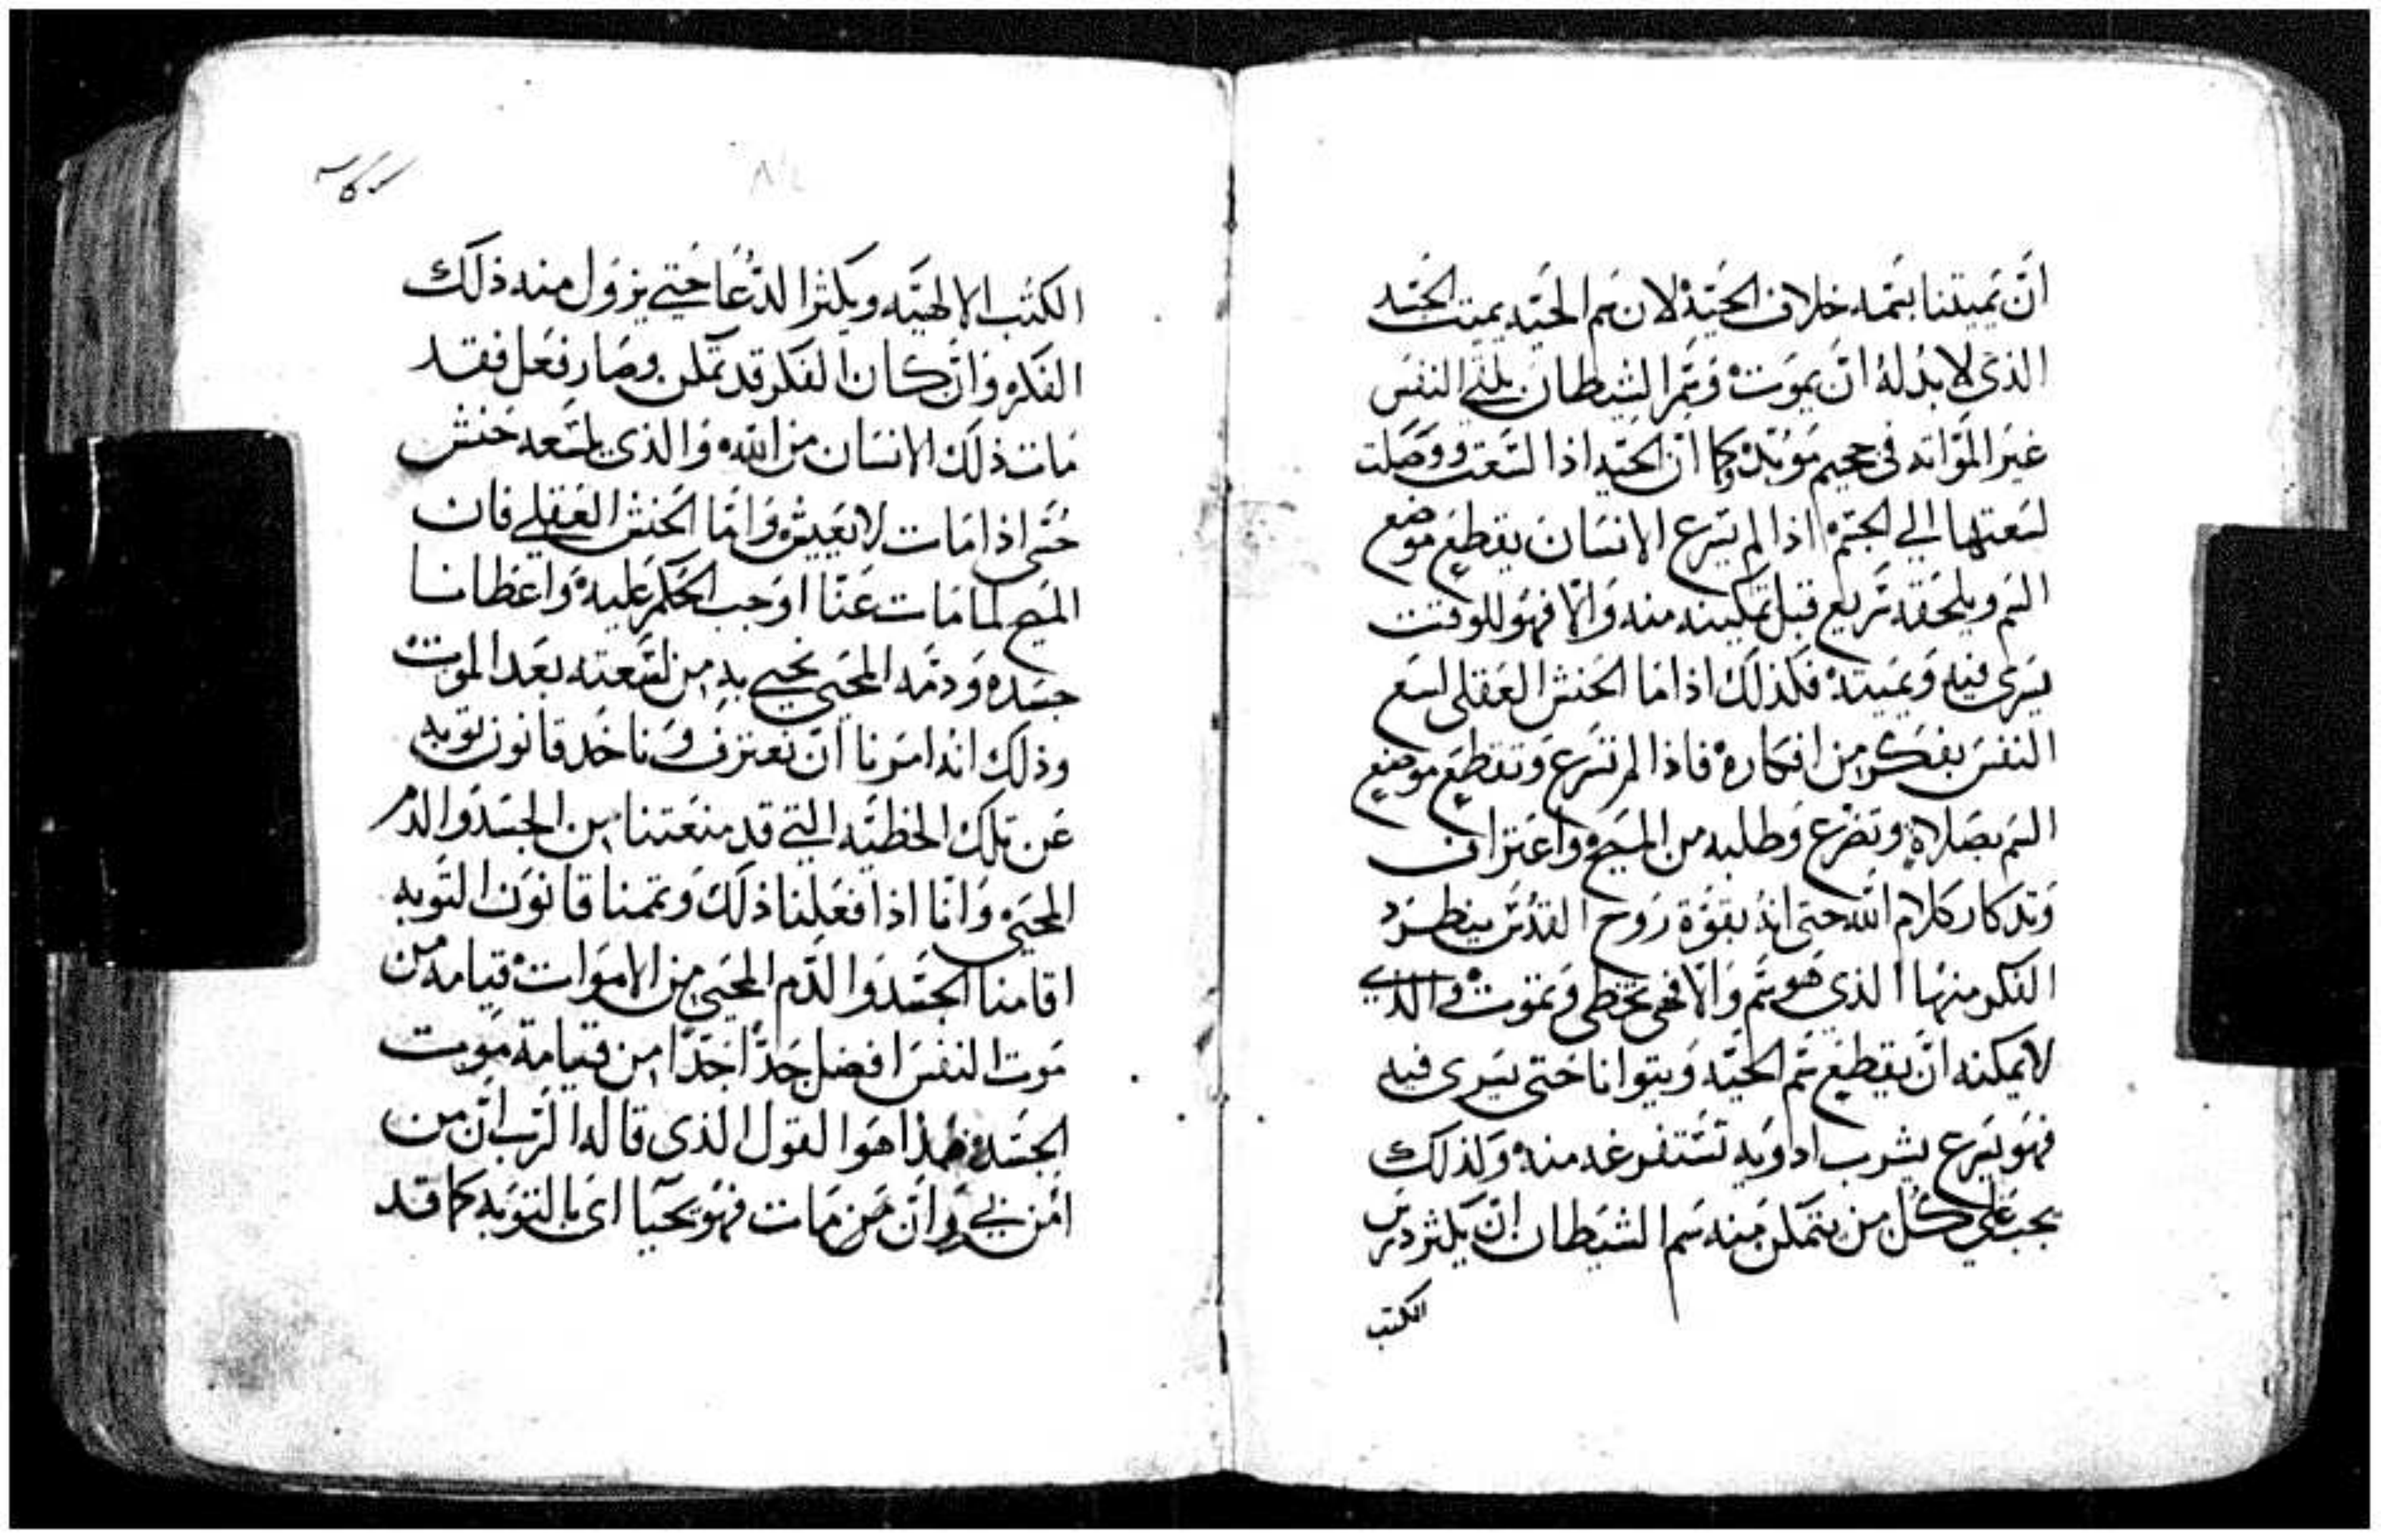 ان يميتنا بسمه خلاف الحيه لان سم الحيه يميت الجسد
الذى لا بد له ان يموت وسم الشيطان يلقى النفس
غير المواته فى جحيم موبده كما ان الحيه اذا لسعت ووصلت
لسعتها الي الجسم اذا لم يسرع الانسان يقطع موضع
السم ويلحقه سريع قبل تمكينه منه والا فهو للوقت
يسرى فيه ويميته فكذلك اذا ما الحنش العقلى لسع
النفس بفكر من افكاره فاذا لم تسرع وتقطع موضع
السم بصلاة وتضرع وطلبه من المسيح واعتراف
وتدكار كلام الله حتى انه بقوة روح القدس ينطرد
الفكر منها الذى هو سم والا فهى تخطى وتموت والذي
لا يمكنه ان يقطع سم الحيه ويتوانا حتى يسرى فيه
فهو يسرع يشرب ادويه تستفرغه منه ولذلك
يجب على كل من يتمكن منه سم الشيطان ان يكثر درس
الكتب
الكتب الالهيه ويكثر الدعا حتي يزول منه ذلك
الفكر وان كان الفكر قد تمكن وصار فعل فقد
مات ذلك الانسان من الله والذى يلسعه حنش
حسى اذا مات لا يعيش واما الحنش العقلي فان
المسيح لما مات عنا اوجب الحكم عليه واعطانا
جسده ودمه المحيى نحيى به من لسعته بعد الموت
وذلك انه امرنا ان نعترف وناخد قانون توبه
عن تلك الخطيه التي قد منعتنا من الجسد والدم
المحيى وانا اذا فعلنا ذلك وتممنا قانون التوبه
اقامنا الجسد والدم المحيى من الاموات قيامه من
موت النفس افضل جدا جدا من قيامة موت
الجسد فهذا هو القول الذى قاله الرب ان من
امن بي وان من مات فهو يحيا اى بالتوبه كما قد